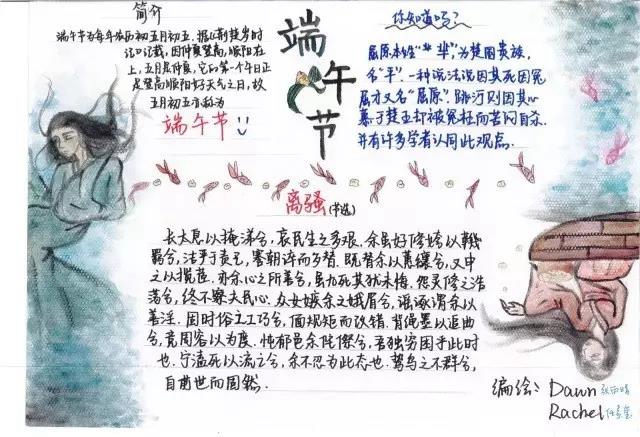 简介
端午节为每年农历初五月初五，据《荆楚岁时
记》记载，因仲夏登高，顺阳在
上，五月是仲夏，它的第一个午日正
是登高顺阳好天气之日，故
五月初五亦称为
端午节
端午节
你知道吗？
屈原本姓“芈”，为楚国贵族，
名“平”。一种说法说因其死因冤
屈才又名“屈原”。跳河则因其心
慕于楚王却被冤枉而苦闷自杀。
并有许多学者认同此观点。
离骚(节选)
长太息以掩涕兮，哀民生之多艰。余虽好修姱以鞿
羁兮，謇朝谇而夕替。既替余以蕙纕兮，又申
之以揽茝。亦余心之所善兮，虽九死其犹未悔。怨灵修之浩
荡兮，终不察夫民心。众女嫉余之娥眉兮，谣诼谓余以
善淫。固时俗之工巧兮，偭规矩而改错。背绳墨以追曲
兮，竞周容以为度。忳郁邑余侘傺兮，吾独穷困乎此时
也。宁溘死以流亡兮，余不忍为此态也。鸷鸟之不群兮，
自前世而固然。
编绘：Dawn
Rachel